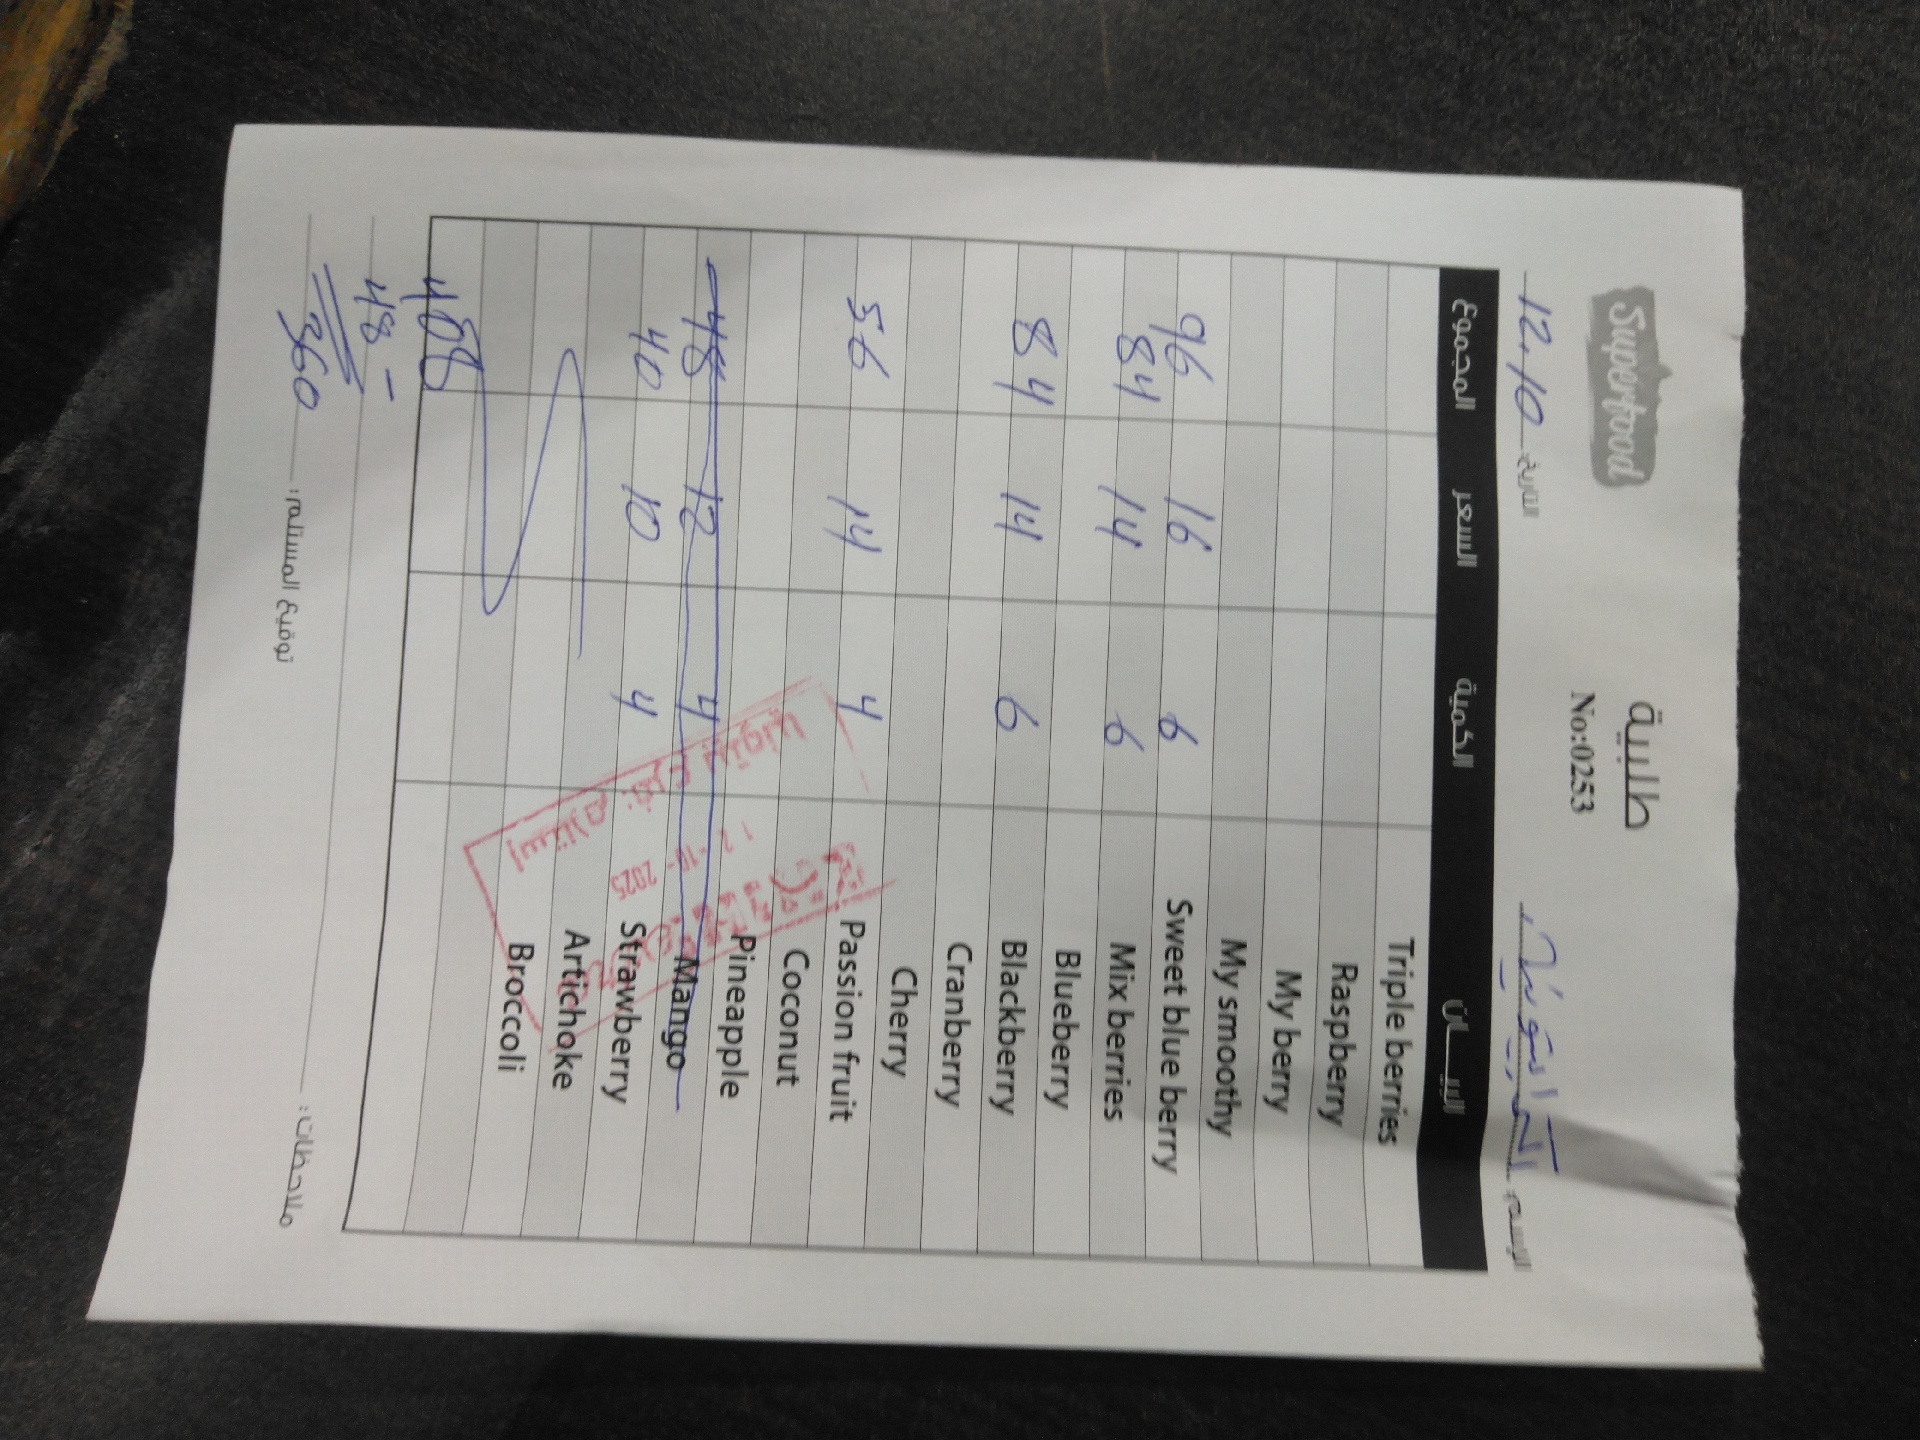 Superfood
طلبية
No:0253
الإسم:
التاريخ: 12.10
البيـــان الكمية السعر المجموع
Triple berries
Raspberry
My berry
My smoothy
Sweet blue berry 6 16 96
Mix berries 6 14 84
Blueberry
Blackberry 6 14 84
Cranberry
Cherry
Passion fruit 4 14 56
Coconut
Pineapple
Mango 4 12 48
Strawberry 4 10 40
Artichoke
Broccoli
408
48 -
360
ملاحظات:
توقيع المستلم:
12-10-2025